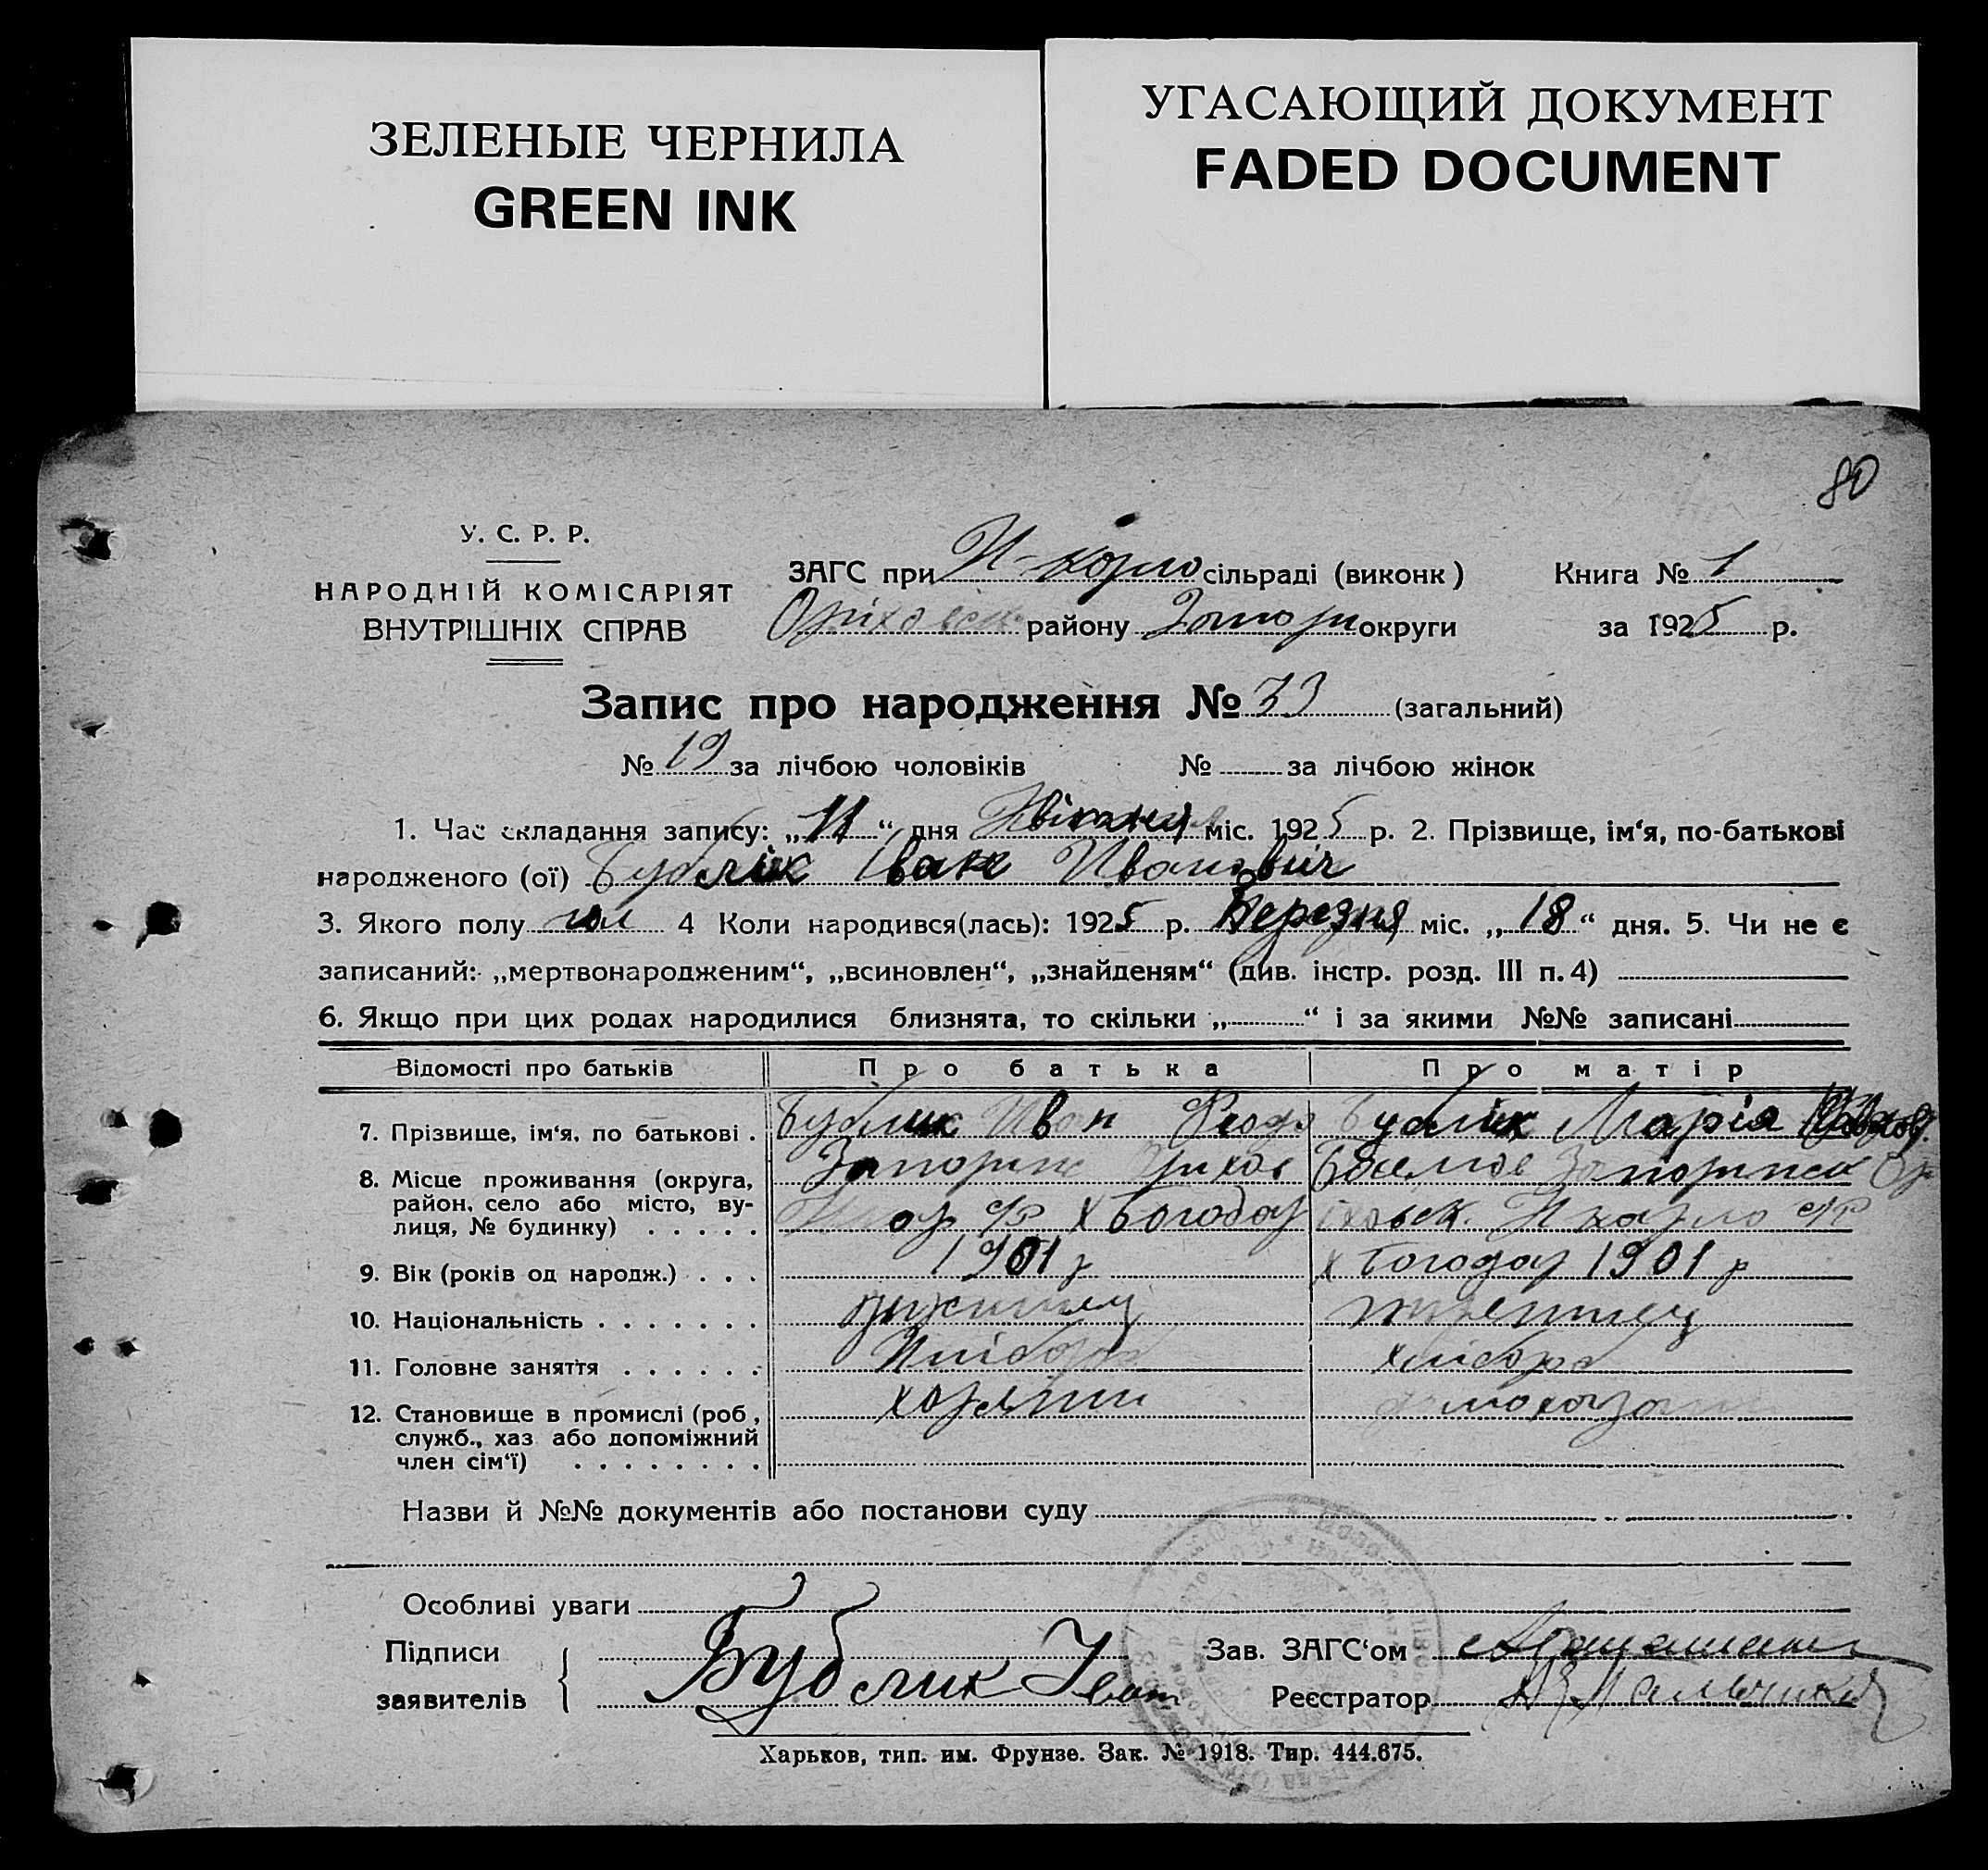 ЗЕЛЕНЫЕ ЧЕРНИЛА
GREEN INK
УГАСАЮЩИЙ ДОКУМЕНТ
FADED DOCUMENT
80
У. С. Р. Р.
НАРОДНІЙ КОМІСАРІЯТ
ВНУТРІШНІХ СПРАВ
ЗАГС при Н-карло сільраді (виконк)
Книга № 1
Оріховськ району Запоріж округи
за 1925 р.
Запис про народження № 33 (загальний)
№ 19 за лічбою чоловіків № за лічбою жінок
1. Час складання запису: „11“ дня Квітня міс. 1925 р. 2. Прізвище, ім‘я, по-батькові
народженого (ої) Бублік Іван Иванович
3. Якого полу чол 4 Коли народився(лась): 1925 р. Березня міс. „18“ дня. 5. Чи не є
записаний: „мертвонародженим“, „всиновлен“, „знайденям“ (див. інстр. розд. III п. 4)
6. Якщо при цих родах народилися близнята, то скільки „ “ і за якими №№ записані
Відомості про батьків Про батька Про матір
7. Прізвище, ім‘я, по батькові . Бублик Иван Бублік Марія
8. Місце проживання (округа,
район, село або місто, ву-
лиця, № будинку) . . . . . с/р х Богодар с/р
9. Вік (років од народж.) . . . 1901 р х Богодар 1901 р
10. Національність . . . . . . .
11. Головне заняття . . . . . . Хлібороб хлібороб
12. Становище в промислі (роб.,
служб., хаз або допоміжний
член сім‘ї) . . . . . . . .
Назви й №№ документів або постанови суду
Особливі уваги
Підписи
заявителів
Бублик Іван
Зав. ЗАГС‘ом
Реєстратор
Харьков, тип. им. Фрунзе. Зак. № 1918. Тир. 444.675.